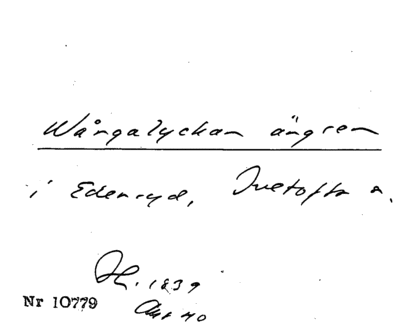 Wångalyckan ängren
i Edenryd, Ivetofta s.
1839
Nr 10779
Akt 40